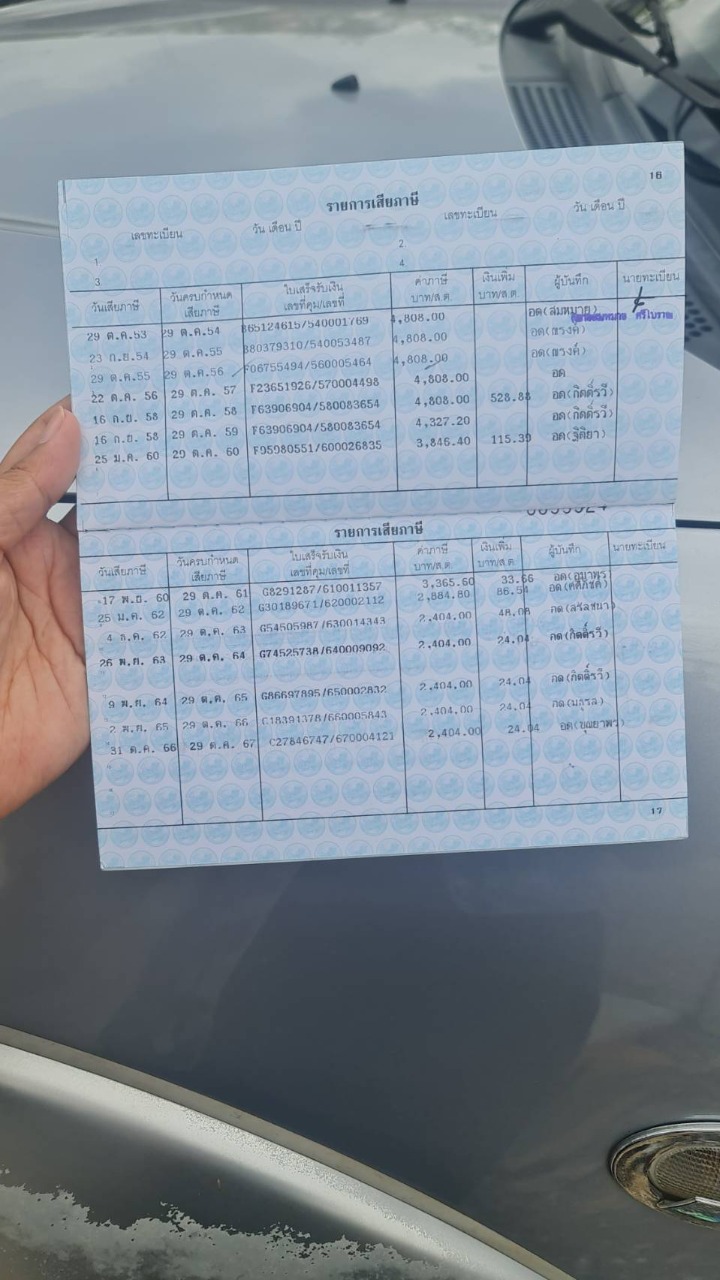 16
รายการเสียภาษี
เลขทะเบียน วัน เดือน ปี เลขทะเบียน วัน เดือน ปี
1 2
3 4
วันเสียภาษี วันครบกำหนดเสียภาษี ใบเสร็จรับเงิน เลขที่คุม/เลขที่ ค่าภาษี บาท/ส.ต. เงินเพิ่ม บาท/ส.ต. ผู้บันทึก นายทะเบียน
29 ต.ค.53 29 ต.ค.54 B65124615/540001769 4,808.00 อด(สมหมาย)
23 ก.ย.54 29 ต.ค.55 B80379310/540053487 4,808.00 อด(ณรงค์)
29 ต.ค.55 29 ต.ค.56 F06755494/560005464 4,808.00 อด(ณรงค์)
22 ต.ค. 56 29 ต.ค. 57 F23651926/570004498 4,808.00 อด
16 ก.ย. 58 29 ต.ค. 58 F63906904/580083654 4,808.00 528.88 อด(กิตติ์รวี)
16 ก.ย. 58 29 ต.ค. 59 F63906904/580083654 4,327.20 อด(กิตติ์รวี)
25 ม.ค. 60 29 ต.ค. 60 F95980551/600026835 3,846.40 115.39 อด(ฐิติยา)
รายการเสียภาษี
วันเสียภาษี วันครบกำหนดเสียภาษี ใบเสร็จรับเงิน เลขที่คุม/เลขที่ ค่าภาษี บาท/ส.ต. เงินเพิ่ม บาท/ส.ต. ผู้บันทึก นายทะเบียน
17 พ.ย. 60 29 ต.ค. 61 G8291287/610011357 3,365.60 33.66
25 ม.ค. 62 29 ต.ค. 62 G30189671/620002112 2,884.80 86.54
4 ธ.ค. 62 29 ต.ค. 63 G54505987/630014343 2,404.00 48.08
26 พ.ย. 63 29 ต.ค. 64 G74525738/640009092 2,404.00 24.04 กด(กิตติ์รวี)
9 พ.ย. 64 29 ต.ค. 65 G86697895/650002832 2,404.00 24.04 กด(กิตติ์รวี)
2 พ.ย. 65 29 ต.ค. 66 C18391378/660005843 2,404.00 24.04
31 ต.ค. 66 29 ต.ค. 67 C27846747/670004121 2,404.00 24.04
17